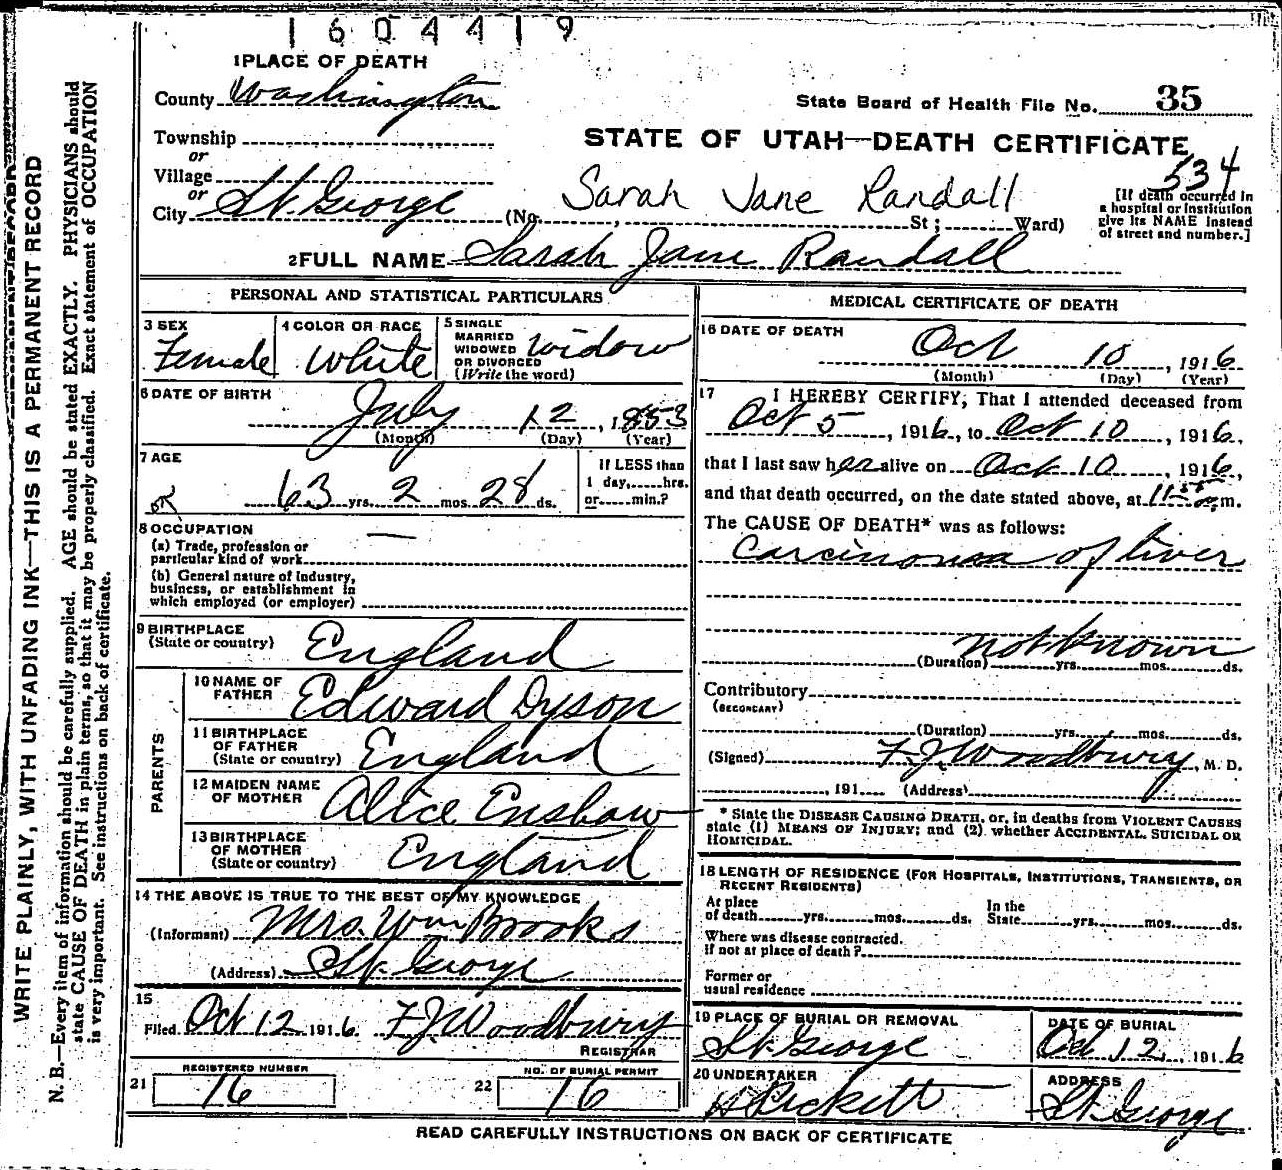 1604419
1 PLACE OF DEATH
County Washington
State Board of Health File No. 35
Township
or
STATE OF UTAH—DEATH CERTIFICATE
534
Village
or
City St. George (No. , Sarah Jane Randall St; Ward)
[If death occurred in
a hospital or institution
give its NAME instead
of street and number.]
2 FULL NAME Sarah Jane Randall
PERSONAL AND STATISTICAL PARTICULARS
3 SEX
Female
4 COLOR OR RACE
White
5 SINGLE
MARRIED
WIDOWED
OR DIVORCED
(Write the word)
widow
6 DATE OF BIRTH
July 12, 1853
(Month) (Day) (Year)
7 AGE
OK 63 yrs. 2 mos. 28 ds.
If LESS than
1 day,......hrs.
or......min.?
8 OCCUPATION —
(a) Trade, profession or
particular kind of work
(b) General nature of Industry,
business, or establishment in
which employed (or employer)
9 BIRTHPLACE
(State or country) England
PARENTS
10 NAME OF
FATHER Edward Dyson
11 BIRTHPLACE
OF FATHER
(State or country) England
12 MAIDEN NAME
OF MOTHER Alice Enshaw
13 BIRTHPLACE
OF MOTHER
(State or country) England
14 THE ABOVE IS TRUE TO THE BEST OF MY KNOWLEDGE
(Informant) Mrs. Wm Brooks
(Address) St. George
15
Filed Oct 12 1916 F.J. Woodbury
REGISTRAR
21 REGISTERED NUMBER
16
22 NO. OF BURIAL PERMIT
16
MEDICAL CERTIFICATE OF DEATH
16 DATE OF DEATH
Oct 10, 1916
(Month) (Day) (Year)
17 I HEREBY CERTIFY, That I attended deceased from
Oct 5, 1916, to Oct 10, 1916,
that I last saw her alive on Oct 10, 1916,
and that death occurred, on the date stated above, at 11 m.
The CAUSE OF DEATH* was as follows:
Carcinoma of liver
not known
(Duration) yrs. mos. ds.
Contributory
(SECONDARY)
(Duration) yrs. mos. ds.
(Signed) F.J. Woodbury, M. D.
, 191 (Address)
* State the DISEASE CAUSING DEATH, or, in deaths from VIOLENT CAUSES
state (1) MEANS OF INJURY; and (2) whether ACCIDENTAL, SUICIDAL OR
HOMICIDAL.
18 LENGTH OF RESIDENCE (FOR HOSPITALS, INSTITUTIONS, TRANSIENTS, OR
RECENT RESIDENTS)
At place
of death yrs. mos. ds.
In the
State yrs. mos. ds.
Where was disease contracted.
If not at place of death?
Former or
usual residence
19 PLACE OF BURIAL OR REMOVAL
St. George
DATE OF BURIAL
Oct 12, 1916
20 UNDERTAKER
Pickett
ADDRESS
St. George
READ CAREFULLY INSTRUCTIONS ON BACK OF CERTIFICATE
WRITE PLAINLY, WITH UNFADING INK—THIS IS A PERMANENT RECORD
N. B.—Every item of information should be carefully supplied. AGE should be stated EXACTLY. PHYSICIANS should
state CAUSE OF DEATH in plain terms, so that it may be properly classified. Exact statement of OCCUPATION
is very important. See instructions on back of certificate.